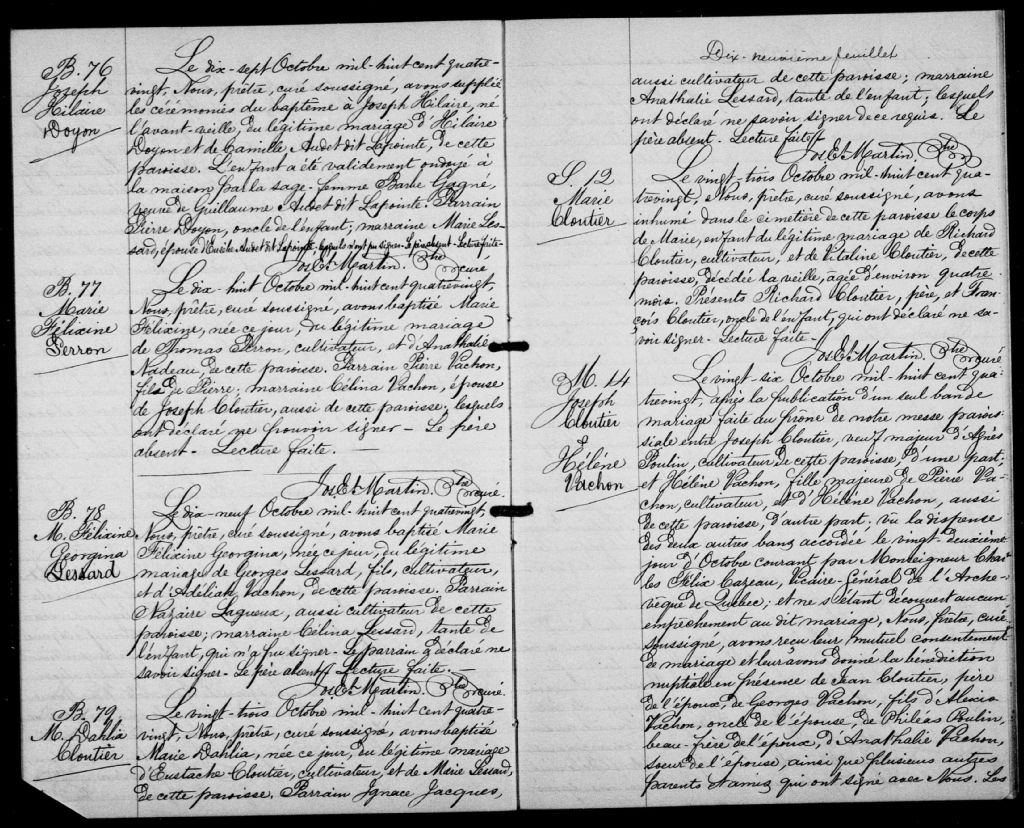 B. 76
Joseph
Hilaire
Doyon
Le dix-sept Octobre mil-huit cent quatre-
vingt, Nous, prêtre, curé soussigné, avons supplié
les cérémonies du baptème à Joseph Hilaire, né
l'avant-veille, du légitime mariage d'Hilaire
Doyon et de Camille Audet dit Lapointe, de cette
paroisse. L'enfant a été validement ondoyé à
la maison par la sage-femme Barbe Gagné,
veuve de Guillaume Audet dit Lapointe. Parrain
Pierre Doyon, oncle de l'enfant; marraine Marie Les-
sard, épouse d'Audet dit Lapointe lesquels n'ont pu signer. Le père absent. Lecture faite.
Jos Et Martin. Ptre curé
B. 77
Marie
Félixine
Perron
Le dix-huit Octobre mil-huit cent quatrevingt,
Nous, prêtre, curé soussigné, avons baptisé Marie
Félixine, née ce jour, du légitime mariage
de Thomas Perron, cultivateur, et d'Anathalie
Nadeau de cette paroisse. Parrain Pierre Vachon,
fils de Pierre; marraine Célina Vachon, épouse
de Joseph Cloutier, aussi de cette paroisse; lesquels
ont déclaré ne pouvoir signer - Le père
absent - Lecture faite. -
Jos Et Martin. Ptre curé.
B. 78
M. Félixine
Georgina
Lessard
Le dix-neuf Octobre mil-huit cent quatrevingt,
Nous, prêtre, curé soussigné, avons baptisé Marie
Félixine Georgina, née ce jour, du légitime
mariage de Georges Lessard, fils, cultivateur,
et d'Adeliah Vachon, de cette paroisse. Parrain
Nazaire Lagueux, aussi cultivateur de cette
paroisse; marraine Célina Lessard, tante de
l'enfant, qui n'a pu signer - Le parrain a déclaré ne
savoir signer - Le père absent Lecture faite. -
Jos Et Martin. Ptre curé.
B. 79
M. Dahlia
Cloutier
Le vingt-trois Octobre mil-huit cent quatre-
vingt, Nous, prêtre, curé soussigné, avons baptisé
Marie Dahlia, née ce jour, du légitime mariage
d'Eustache Cloutier, cultivateur, et de Marie Lessard,
de cette paroisse. Parrain Ignace Jacques,
Dix-neuvième feuillet
aussi cultivateur de cette paroisse; marraine
Anathalie Lessard, tante de l'enfant; lesquels
ont déclaré ne savoir signer de ce requis. Le
père absent - Lecture faite
Jos Et Martin. Ptre
S. 12
Marie
Cloutier
Le vingt-trois Octobre mil-huit cent qua-
trevingt, Nous, prêtre, curé soussigné, avons
inhumé dans le cimetière de cette paroisse le corps
de Marie, enfant du légitime mariage de Richard
Cloutier, cultivateur, et de Vitaline Cloutier, de cette
paroisse, décédée la veille, âgée d'environ quatre
mois. Présents Richard Cloutier, père, et Fran-
çois Cloutier, oncle de l'enfant, qui ont déclaré ne sa-
voir signer - Lecture faite -
Jos Et Martin. Ptre curé
M. 14
Joseph
Cloutier
&
Hélène
Vachon
Le vingt-six Octobre mil-huit cent qua-
trevingt, après la publication d'un seul ban de
mariage faite au prône de notre messe parois-
siale entre Joseph Cloutier, veuf majeur d'Agnès
Poulin, cultivateur de cette paroisse, d'une part;
et Hélène Vachon, fille majeure de Pierre Va-
chon, cultivateur, et d'Hélène Vachon, aussi
de cette paroisse, d'autre part; vu la dispense
des deux autres bans accordée le vingt-deuxième
jour d'Octobre courant par Monseigneur Char-
les Félix Cazeau, Vicaire-Général de l'Arche-
vêque de Québec; et ne s'étant découvert aucun
empêchement au dit mariage, Nous, Prêtre, curé,
soussigné, avons reçu leur mutuel consentement
de mariage et leur avons donné la bénédiction
nuptiale en présence de Jean Cloutier, père
de l'époux, de Georges Vachon, fils d'Alexis
Vachon, oncle de l'épouse, de Philéas Poulin,
beau-frère de l'époux, d'Anathalie Vachon,
soeur de l'épouse, ainsi que plusieurs autres
parents et amis qui ont signé avec Nous. Les